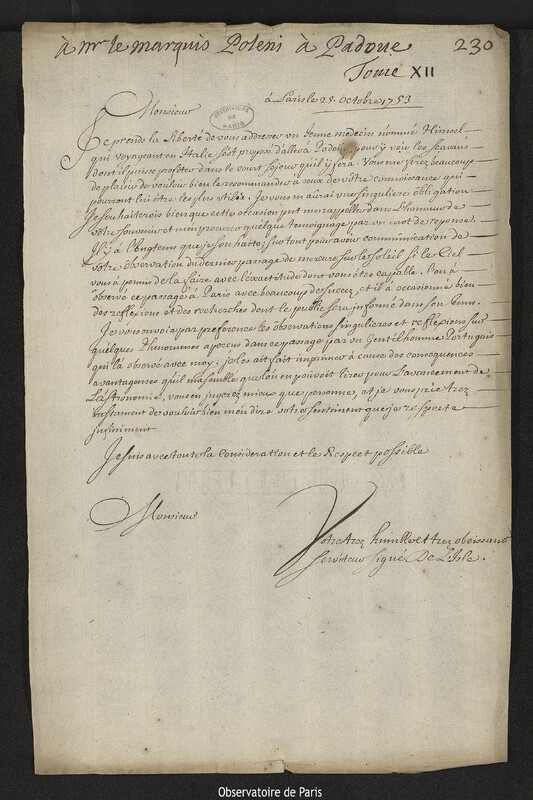 à mr. le marquis Poleni à Padoue 230
Tome XII
à Paris le 25. Octobre 1753
Monsieur
OBSERVATOIRE DE PARIS
Je prends la liberté de vous addresser un jeune medecin nommé
qui voyageant en Italie s'est proposé d'aller à Padoue pour y voir les sçavans
dont il puisse profiter dans le court sejour qu'il y fera. Vous me ferez beaucoup
de plaisir de vouloir bien le recommander à ceux de vôtre connoissance qui
pourront lui être les plus utiles. Je vous en aurai une singuliere obligation
Je souhaiterois bien que cette occasion put me rappeller dans l'honneur de
vôtre souvenir et m'en procurer quelque temoignage par un mot de reponse.
Il y a longtems que je le souhaite; surtout pour avoir communication de
vôtre observation du dernier passage de mercure sur le soleil si le Ciel
vous a permis de la faire avec l'exactitude dont vous êtes capable. L'on a
observé ce passage à Paris avec beaucoup de succez, et il a occasionné bien
des reflexions et des recherches dont le public sera informé dans son tems.
Je vous envoie par preference les observations singulieres et reflexions sur
quelques Phenomenes aperçus dans ce passage par un Gentilhomme Portugais
qui l'a observé avec moy. je les ai fait imprimer à cause des consequences
avantageuses qu'il m'a semblé que l'on en pouvoit tirer pour l'avancement de
L'astronomie, vous en jugerez mieux que personne, et je vous prie trez
instamment de vouloir bien m'en dire votre sentiment que je respecte
infiniment
Je suis avec toute la Consideration et le Respect possible
Monsieur
Votre trez humble et trez obeissant
serviteur signé De L'Isle.
Observatoire de Paris